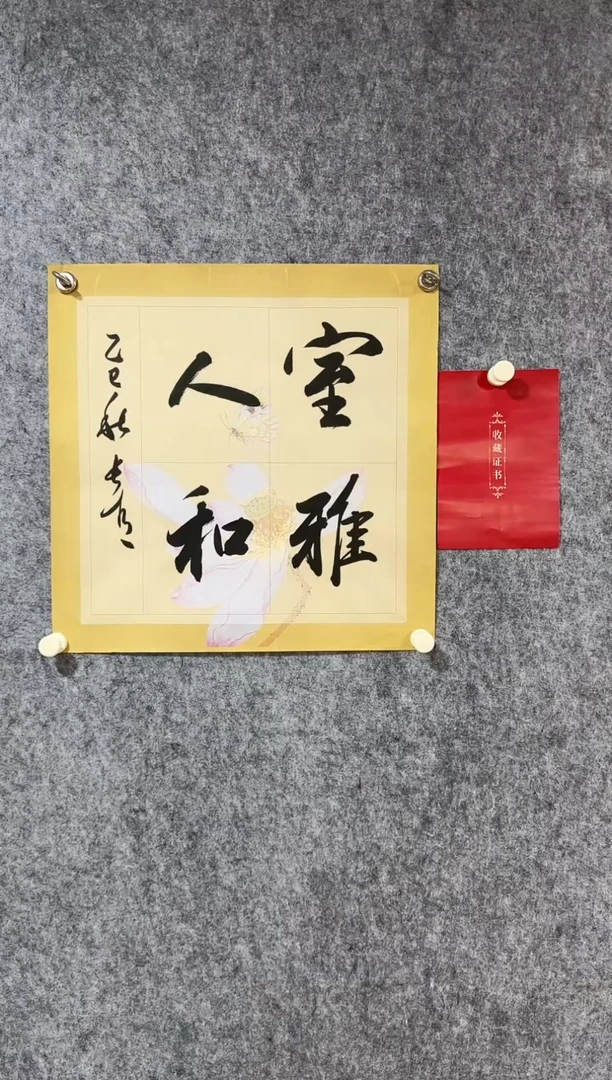 室雅
人和
乙巳秋
收藏证书